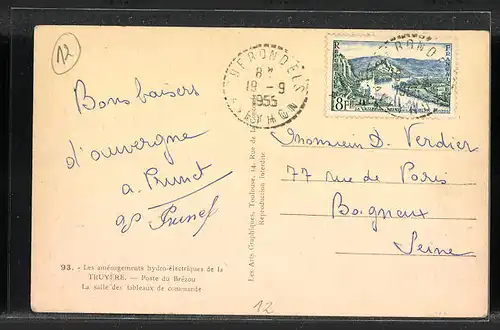 12
Bons baisers
d'auvergne
a. Prunet
93. - Les aménagements hydro-électriques de la
TRUYÈRE. — Poste du Brézou
La salle des tableaux de commande
Les Arts Graphiques, Toulouse, 14, Rue de
Reproduction Interdite
8 H
19 - 9
1955
8F
Monsieur D. Verdier
77 rue de Paris
Bagneux
Seine
12